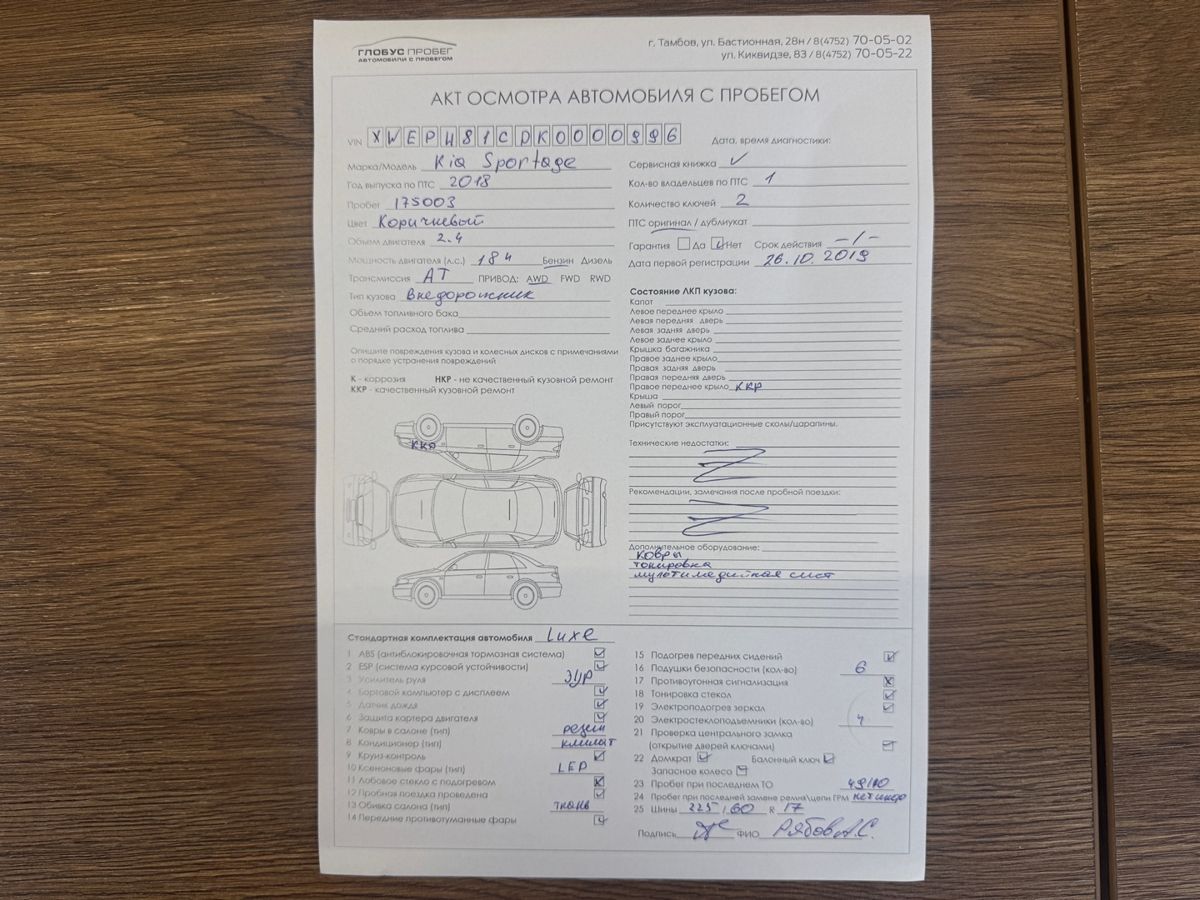 ГЛОБУС ПРОБЕГ
АВТОМОБИЛИ С ПРОБЕГОМ
г. Тамбов, ул. Бастионная, 28н / 8(4752) 70-05-02
ул. Киквидзе, 83 / 8(4752) 70-05-22
АКТ ОСМОТРА АВТОМОБИЛЯ С ПРОБЕГОМ
VIN XWEPH81CDK0000996
Дата, время диагностики:
Марка/Модель Kia Sportage
Год выпуска по ПТС 2018
Пробег 175003
Цвет Коричневый
Объем двигателя 2.4
Мощность двигателя (л.с.) 184 Бензин Дизель
Трансмиссия АТ ПРИВОД: AWD FWD RWD
Тип кузова Внедорожник
Объем топливного бака
Средний расход топлива
Опишите повреждения кузова и колесных дисков с примечаниями
о порядке устранения повреждений
К - коррозия НКР - не качественный кузовной ремонт
ККР - качественный кузовной ремонт
ККР
Сервисная книжка
Кол-во владельцев по ПТС 1
Количество ключей 2
ПТС оригинал / дубликат
Гарантия Да Нет Срок действия -/-
Дата первой регистрации 26.10.2019
Состояние ЛКП кузова:
Капот
Левое переднее крыло
Левая передняя дверь
Левая задняя дверь
Левое заднее крыло
Крышка багажника
Правое заднее крыло
Правая задняя дверь
Правая передняя дверь
Правое переднее крыло ККР
Крыша
Левый порог
Правый порог
Присутствуют эксплуатационные сколы/царапины.
Технические недостатки:
Рекомендации, замечания после пробной поездки:
Дополнительное оборудование:
ковры
тонировка
мультимедийная сист
Стандартная комплектация автомобиля Luxe
1 ABS (антиблокировочная тормозная система)
2 ESP (система курсовой устойчивости)
3 Усилитель руля ЭУР
4 Бортовой компьютер с дисплеем
5 Датчик дождя
6 Защита картера двигателя
7 Ковры в салоне (тип) резин
8 Кондиционер (тип) климат
9 Круиз-контроль
10 Ксеноновые фары (тип) LED
11 Лобовое стекло с подогревом
12 Пробная поездка проведена
13 Обивка салона (тип) ткань
14 Передние противотуманные фары
15 Подогрев передних сидений
16 Подушки безопасности (кол-во) 6
17 Противоугонная сигнализация
18 Тонировка стекол
19 Электроподогрев зеркал
20 Электростеклоподъемники (кол-во) 4
21 Проверка центрального замка
(открытие дверей ключами)
22 Домкрат Балонный ключ
Запасное колесо
23 Пробег при последнем ТО
24 Пробег при последней замене ремня/цепи ГРМ
25 Шины 225 / 60 R 17
Подпись ФИО Рябов А.С.